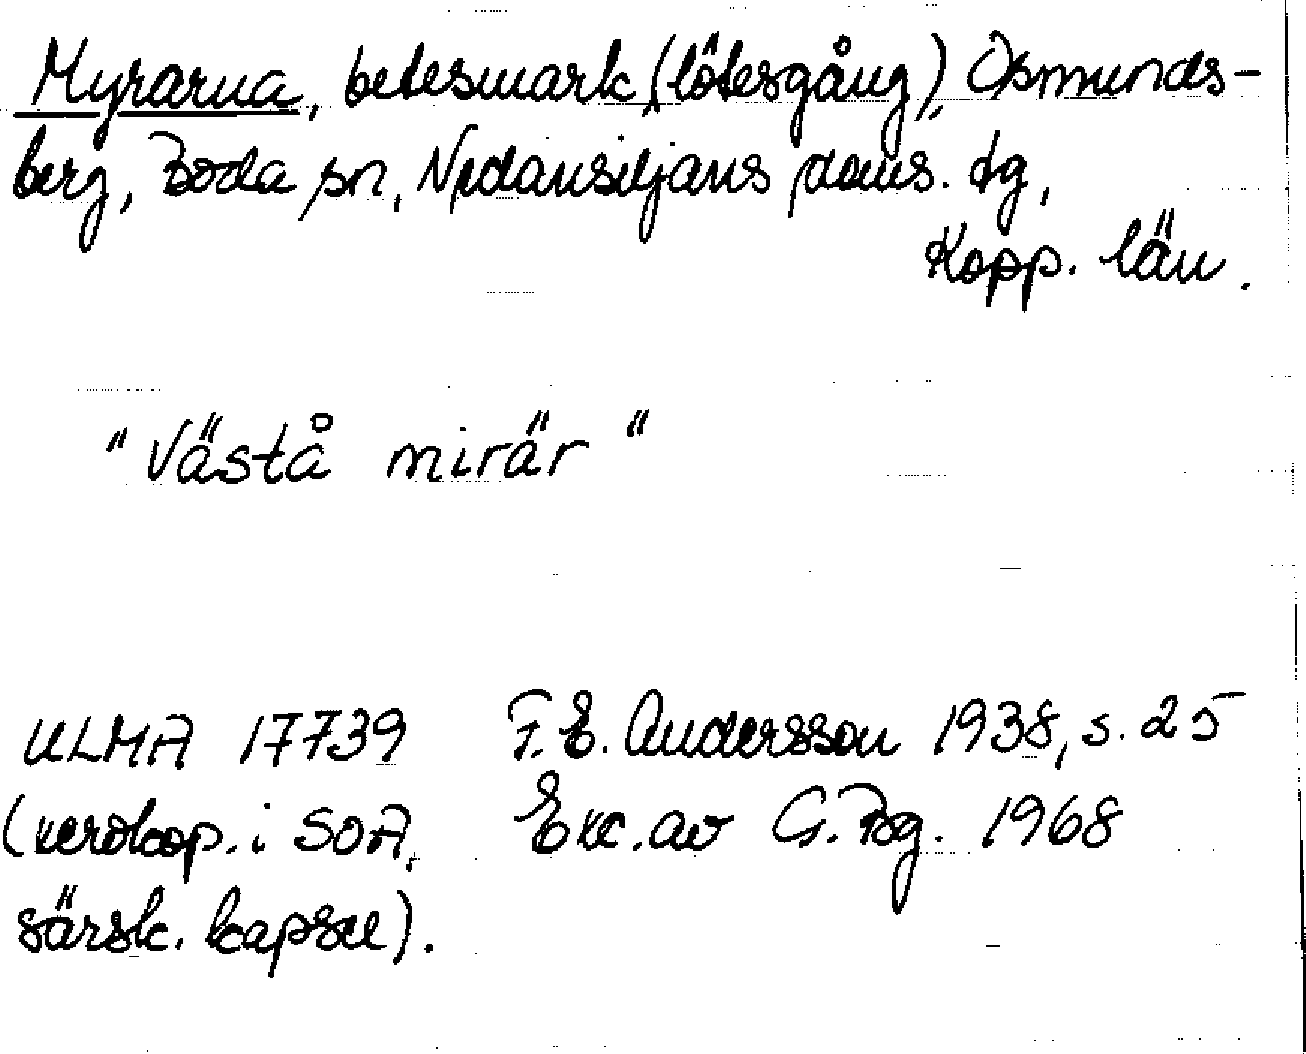 Myrarna, betesmark (lötesgång), Osmunds-
berg, Boda sn, Nedansiljans doms. tg,
Kopp. län.
"Västå mirär"
ULMA 17739 F.E. Andersson 1938, s. 25
(xerokop. i SOA, Exc. av G. Bg. 1968
särsk. kapsel).